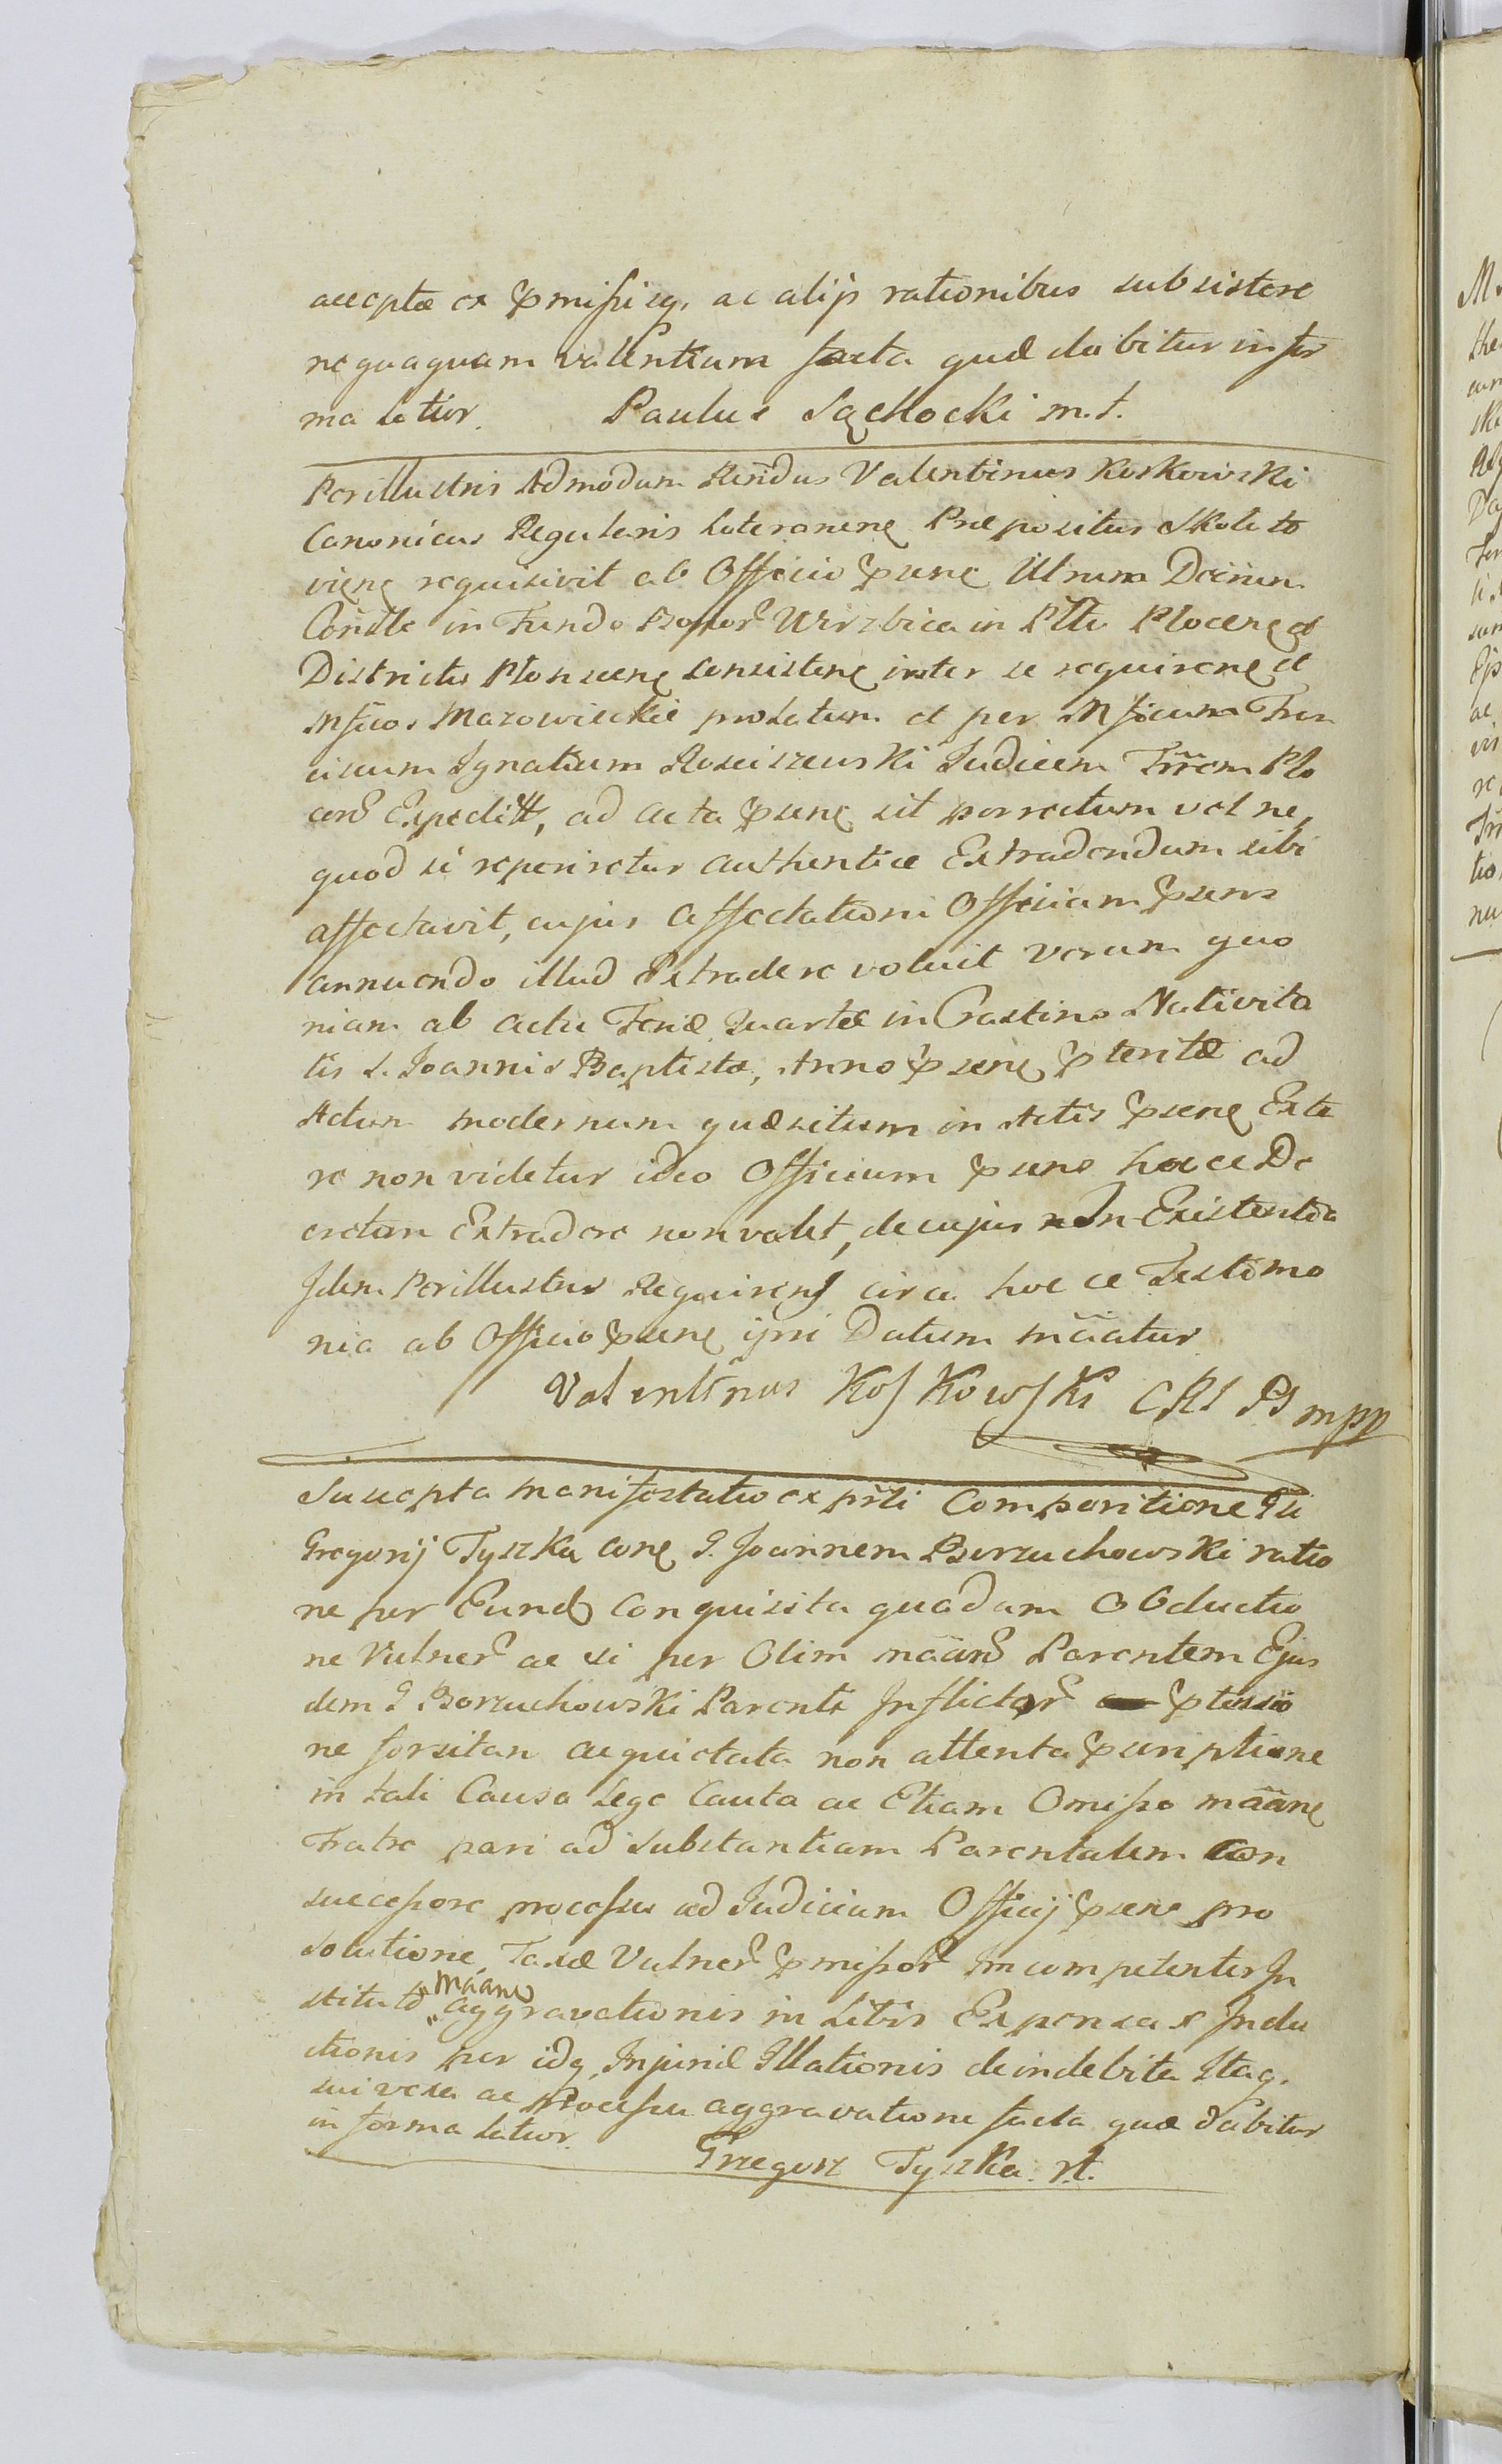 acceptæ ex pmissisq, ac alijs rationibus subsistere
nequaquam valentium facta quæ dabitur in for
ma latior. Paulus Sąchocki m.t.
Perillustris Admodum Rendus Valentinus Koskowski
Canonicus Regularis Lateranens Præpositus Skołato
viens requisivit ab Officio psens Utrum Decium
Condle in Fundo Bonor Wirzbica in Pltu Plocens et
Districtu Plonscens Consistens inter se requirens et
Mficos Mazowieckie prolatum et per Mficum Fran
ciscum Ignatium Rosciszewski Judicem Trrem Plo
cens Expeditt, ad acta psens sit porrectum vel ne,
quod si reperiretur authentice Extradendum sibi
affectavit, cujus affectationi Officium psens
annuendo illud Extradere voluit verum quo
niam ab actu Feriæ Quartæ in Crastino Nativita
tis S. Joannis Baptistæ, Anno psens pteritæ ad
Actum modernum quæsitum in Actis psens Exta
re non videtur ideo Officium psens hocce De
cretum Extradere non valet, de cujus In Existentia
Idem Perillustris Requirens circa hocce Testimo
nia ab Officio psens ipsi Datum mãatur
Valentinus Koskowski CRL PS mpp
Suscepta manifestatio ex prti Comparitione Gli
Gregorij Tyszka cons G. Joannem Borzuchowski ratio
ne per Eund Conquisita quadam Obductio
ne Vulner ac si per Olim mãans Parentem Ejus
dem G Borzuchowski Parenti Inflictor ptessio
ne forsitan acquietata non attenta pscriptione
in tali Causa Lege Cauta ac Etiam Omisso mãans
Fratre pari ad Substantiam Parentalem Con
successore processu ad Judicium Officij psens pro
solutione Taxæ Vulner pmissor Imcompetenter In
stituto mãans aggravationis in Litis Expensas Indu
ctionis per idq Injuriæ Illationis de indebita Itaq.
sui vexa ac Processu aggravatione facta quæ dabitur
in forma latior. Grzegorz Tyszka. rt.